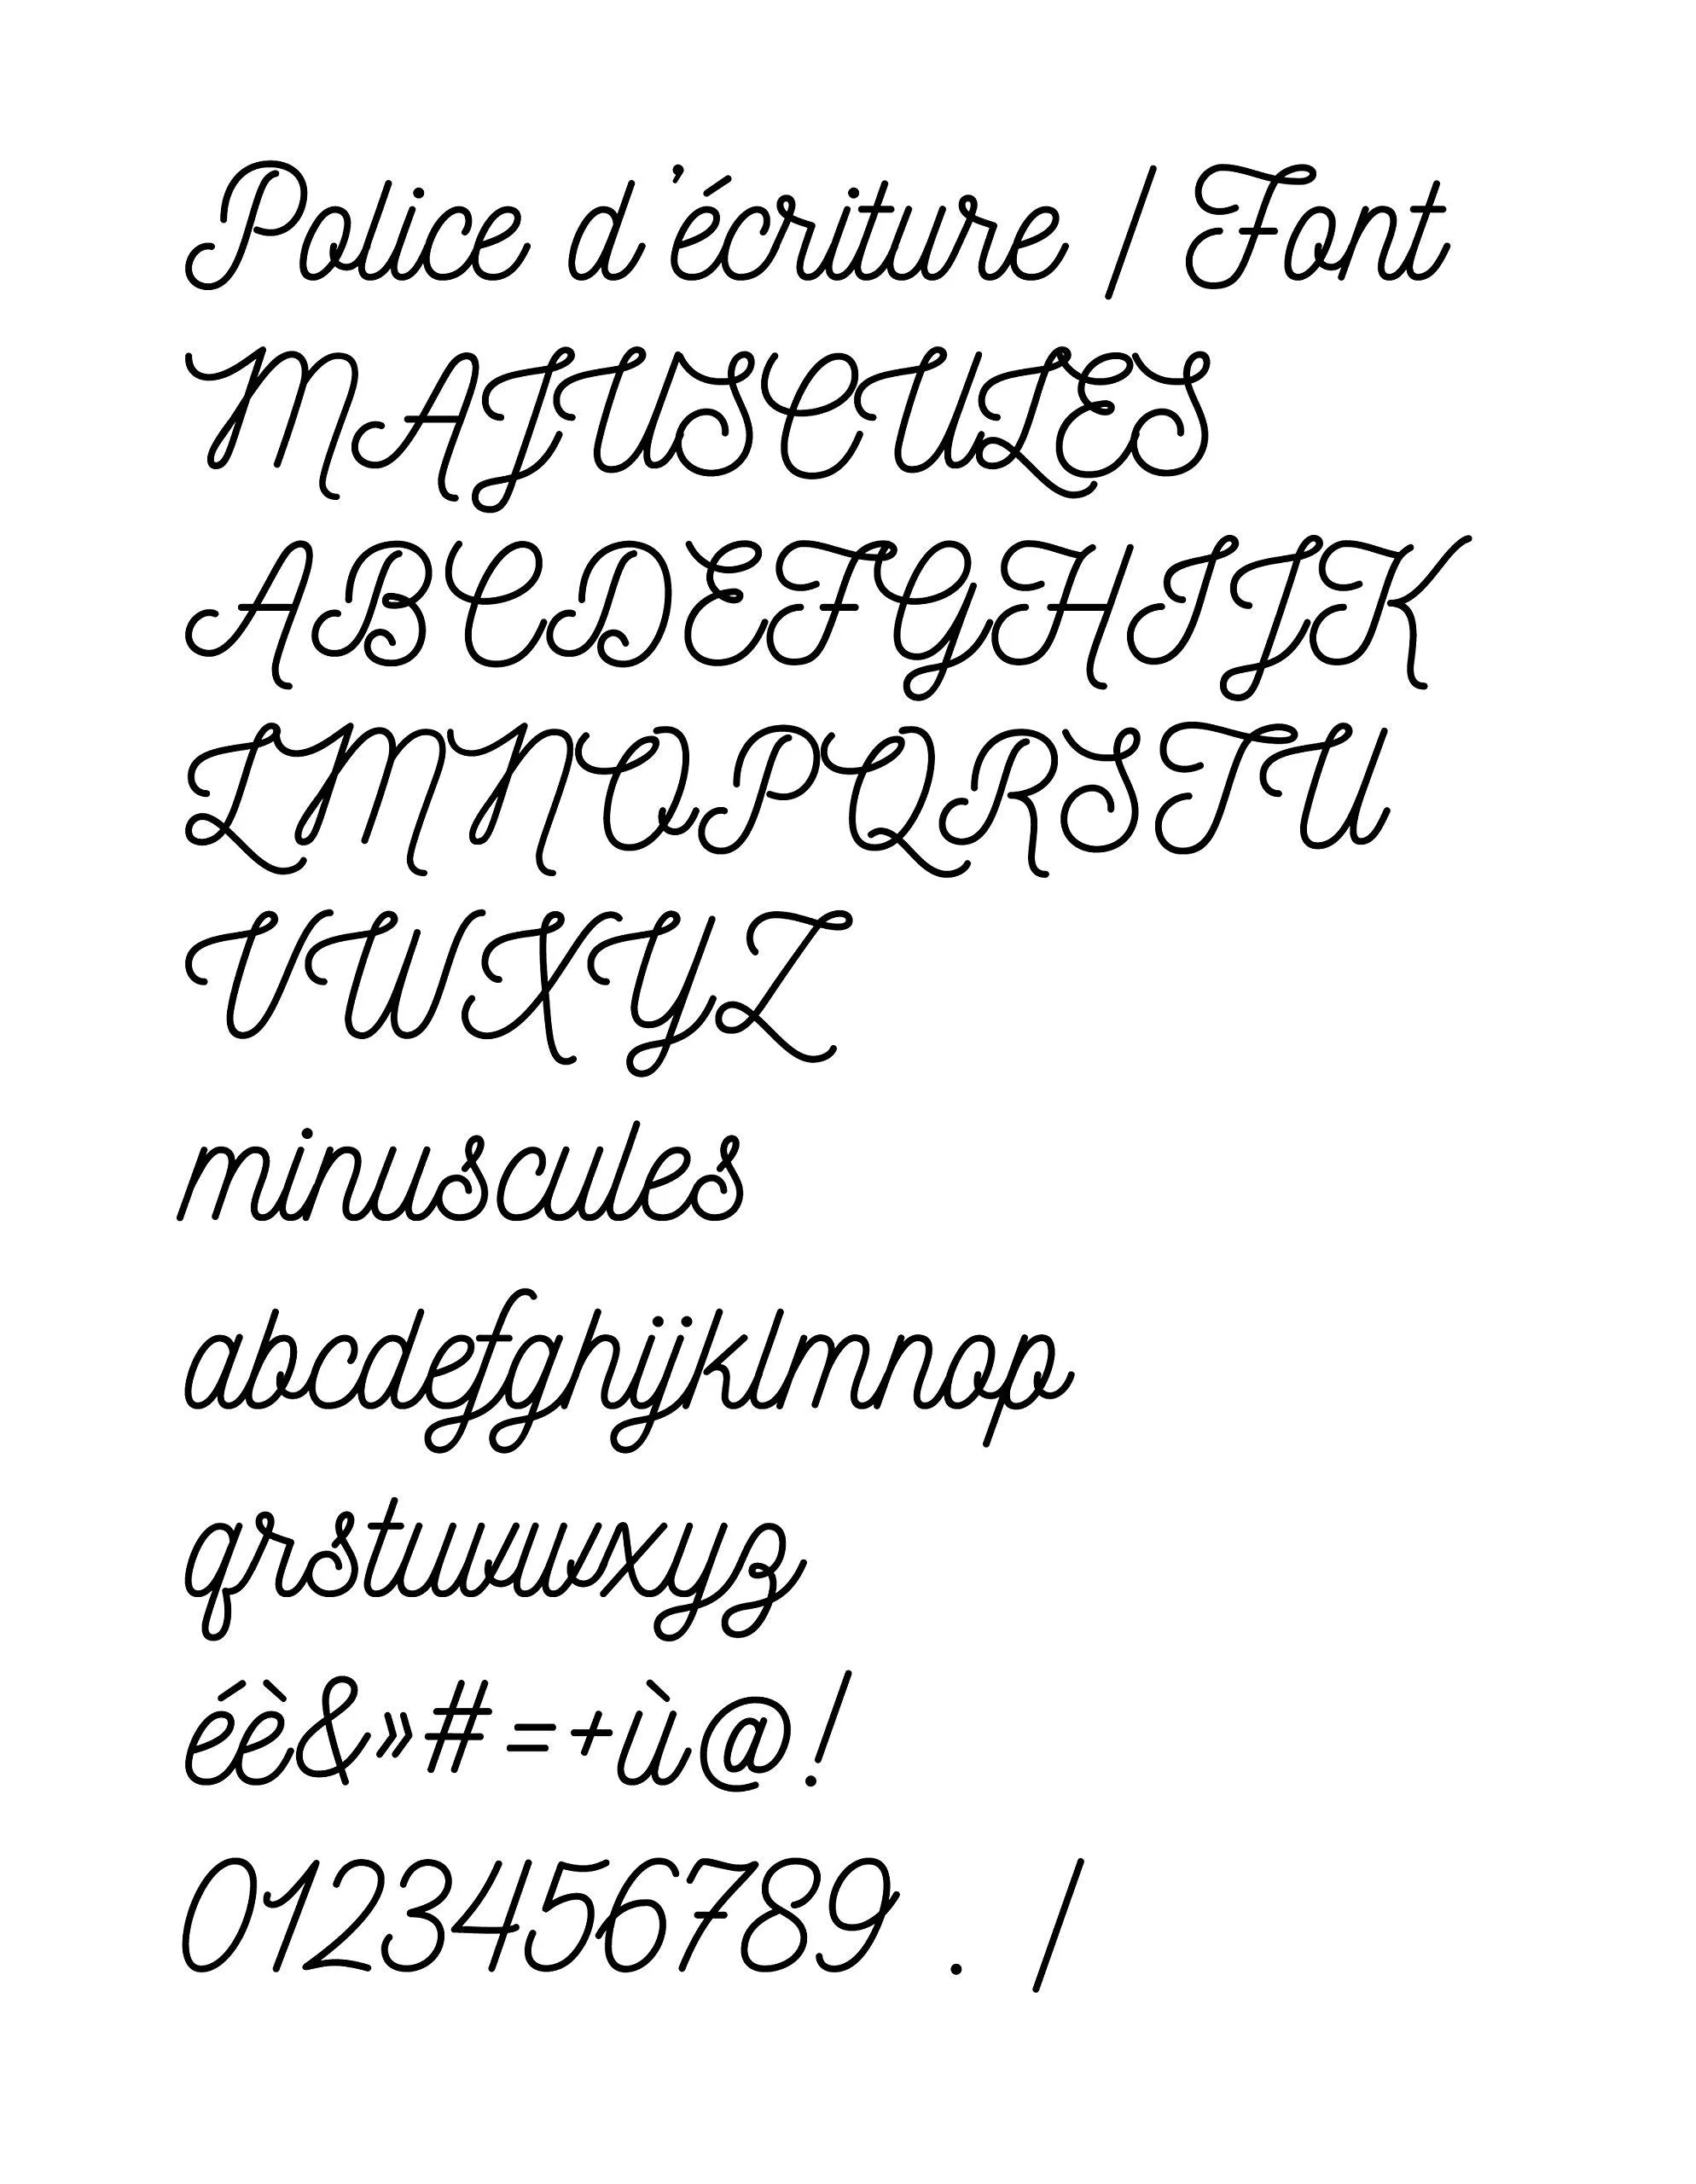 Police d'écriture / Font
MAJUSCULES
ABCDEFGHIJK
LMNOPQRSTU
VWXYZ
minuscules
abcdefghijklmnop
qrstuvwxyz
éè&»#=+ù@!
0123456789 . /